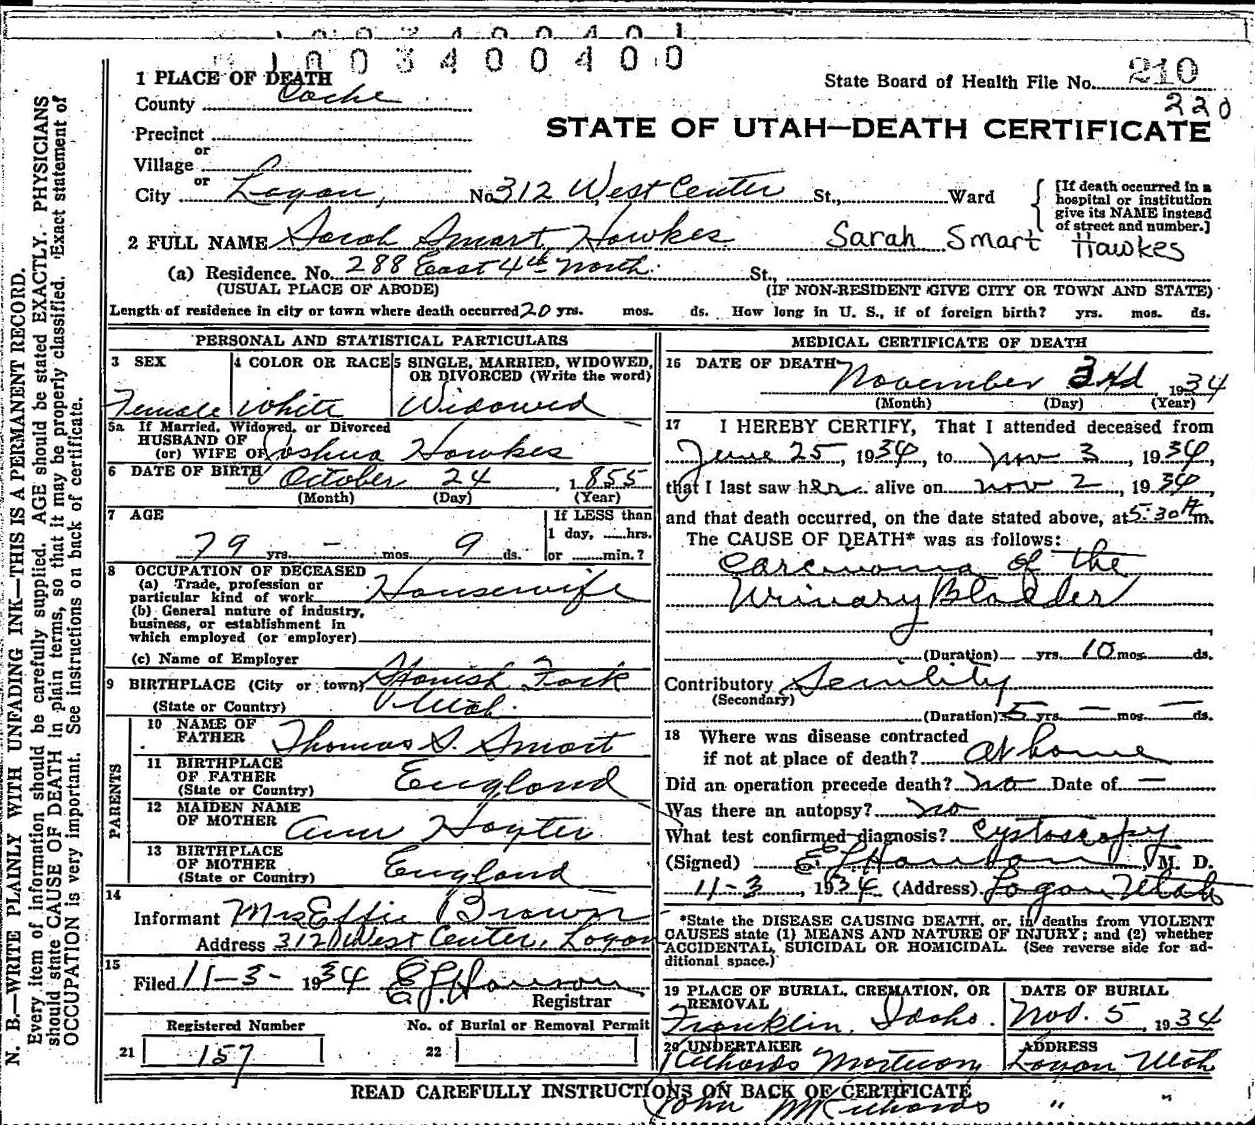 1 0 0 3 4 0 0 4 0 0
1 PLACE OF DEATH
State Board of Health File No. 210
220
County Cache
STATE OF UTAH—DEATH CERTIFICATE
Precinct
or
Village
or
City Logan, No. 312 West Center St., Ward
[If death occurred in a hospital or institution give its NAME instead of street and number.]
2 FULL NAME Sarah Smart Hawkes Sarah Smart Hawkes
(a) Residence. No. 288 East 4th North. St.,
(USUAL PLACE OF ABODE) (IF NON-RESIDENT GIVE CITY OR TOWN AND STATE)
Length of residence in city or town where death occurred 20 yrs. mos. ds. How long in U. S., if of foreign birth? yrs. mos. ds.
PERSONAL AND STATISTICAL PARTICULARS
3 SEX
Female
4 COLOR OR RACE
White
5 SINGLE, MARRIED, WIDOWED, OR DIVORCED (Write the word)
Widowed
5a If Married, Widowed, or Divorced
HUSBAND OF
(or) WIFE OF Joshua Hawkes
6 DATE OF BIRTH October 24, 1855
(Month) (Day) (Year)
7 AGE
If LESS than
1 day, hrs.
79 yrs. – mos. 9 ds. or min.?
8 OCCUPATION OF DECEASED
(a) Trade, profession or
particular kind of work Housewife
(b) General nature of industry,
business, or establishment in
which employed (or employer)
(c) Name of Employer
9 BIRTHPLACE (City or town) Spanish Fork
(State or Country) Utah.
PARENTS
10 NAME OF
FATHER Thomas S. Smart
11 BIRTHPLACE
OF FATHER England
(State or Country)
12 MAIDEN NAME
OF MOTHER Ann Hayter.
13 BIRTHPLACE
OF MOTHER England
(State or Country)
14
Informant Mrs Effie Brown
Address 312 West Center, Logan
15
Filed 11-3- 1934 E. L. Hanson
Registrar
Registered Number
21 157
No. of Burial or Removal Permit
22
MEDICAL CERTIFICATE OF DEATH
16 DATE OF DEATH November 3rd 1934
(Month) (Day) (Year)
17 I HEREBY CERTIFY, That I attended deceased from
June 25, 1934, to Nov 3, 1934,
that I last saw her alive on Nov 2, 1934
and that death occurred, on the date stated above, at 5:30 A m.
The CAUSE OF DEATH* was as follows:
Carcinoma of the
Urinary Bladder
(Duration) yrs. 10 mos. ds.
Contributory Senility
(Secondary)
(Duration) 5 yrs. – mos. – ds.
18 Where was disease contracted
if not at place of death? at home
Did an operation precede death? no Date of –
Was there an autopsy? no
What test confirmed diagnosis? Cystoscopy
(Signed) E L Hanson, M. D.
11-3, 1934 (Address) Logan Utah
*State the DISEASE CAUSING DEATH, or, in deaths from VIOLENT
CAUSES state (1) MEANS AND NATURE OF INJURY; and (2) whether
ACCIDENTAL, SUICIDAL OR HOMICIDAL. (See reverse side for ad-
ditional space.)
19 PLACE OF BURIAL, CREMATION, OR
REMOVAL
Franklin, Idaho.
DATE OF BURIAL
Nov. 5, 1934
20 UNDERTAKER
Richards Mortuary
ADDRESS
Logan Utah
READ CAREFULLY INSTRUCTIONS ON BACK OF CERTIFICATE
John M Richards " "
N. B.—WRITE PLAINLY WITH UNFADING INK—THIS IS A PERMANENT RECORD.
Every item of information should be carefully supplied. AGE should be stated EXACTLY. PHYSICIANS
should state CAUSE OF DEATH in plain terms, so that it may be properly classified. Exact statement of
OCCUPATION is very important. See instructions on back of certificate.